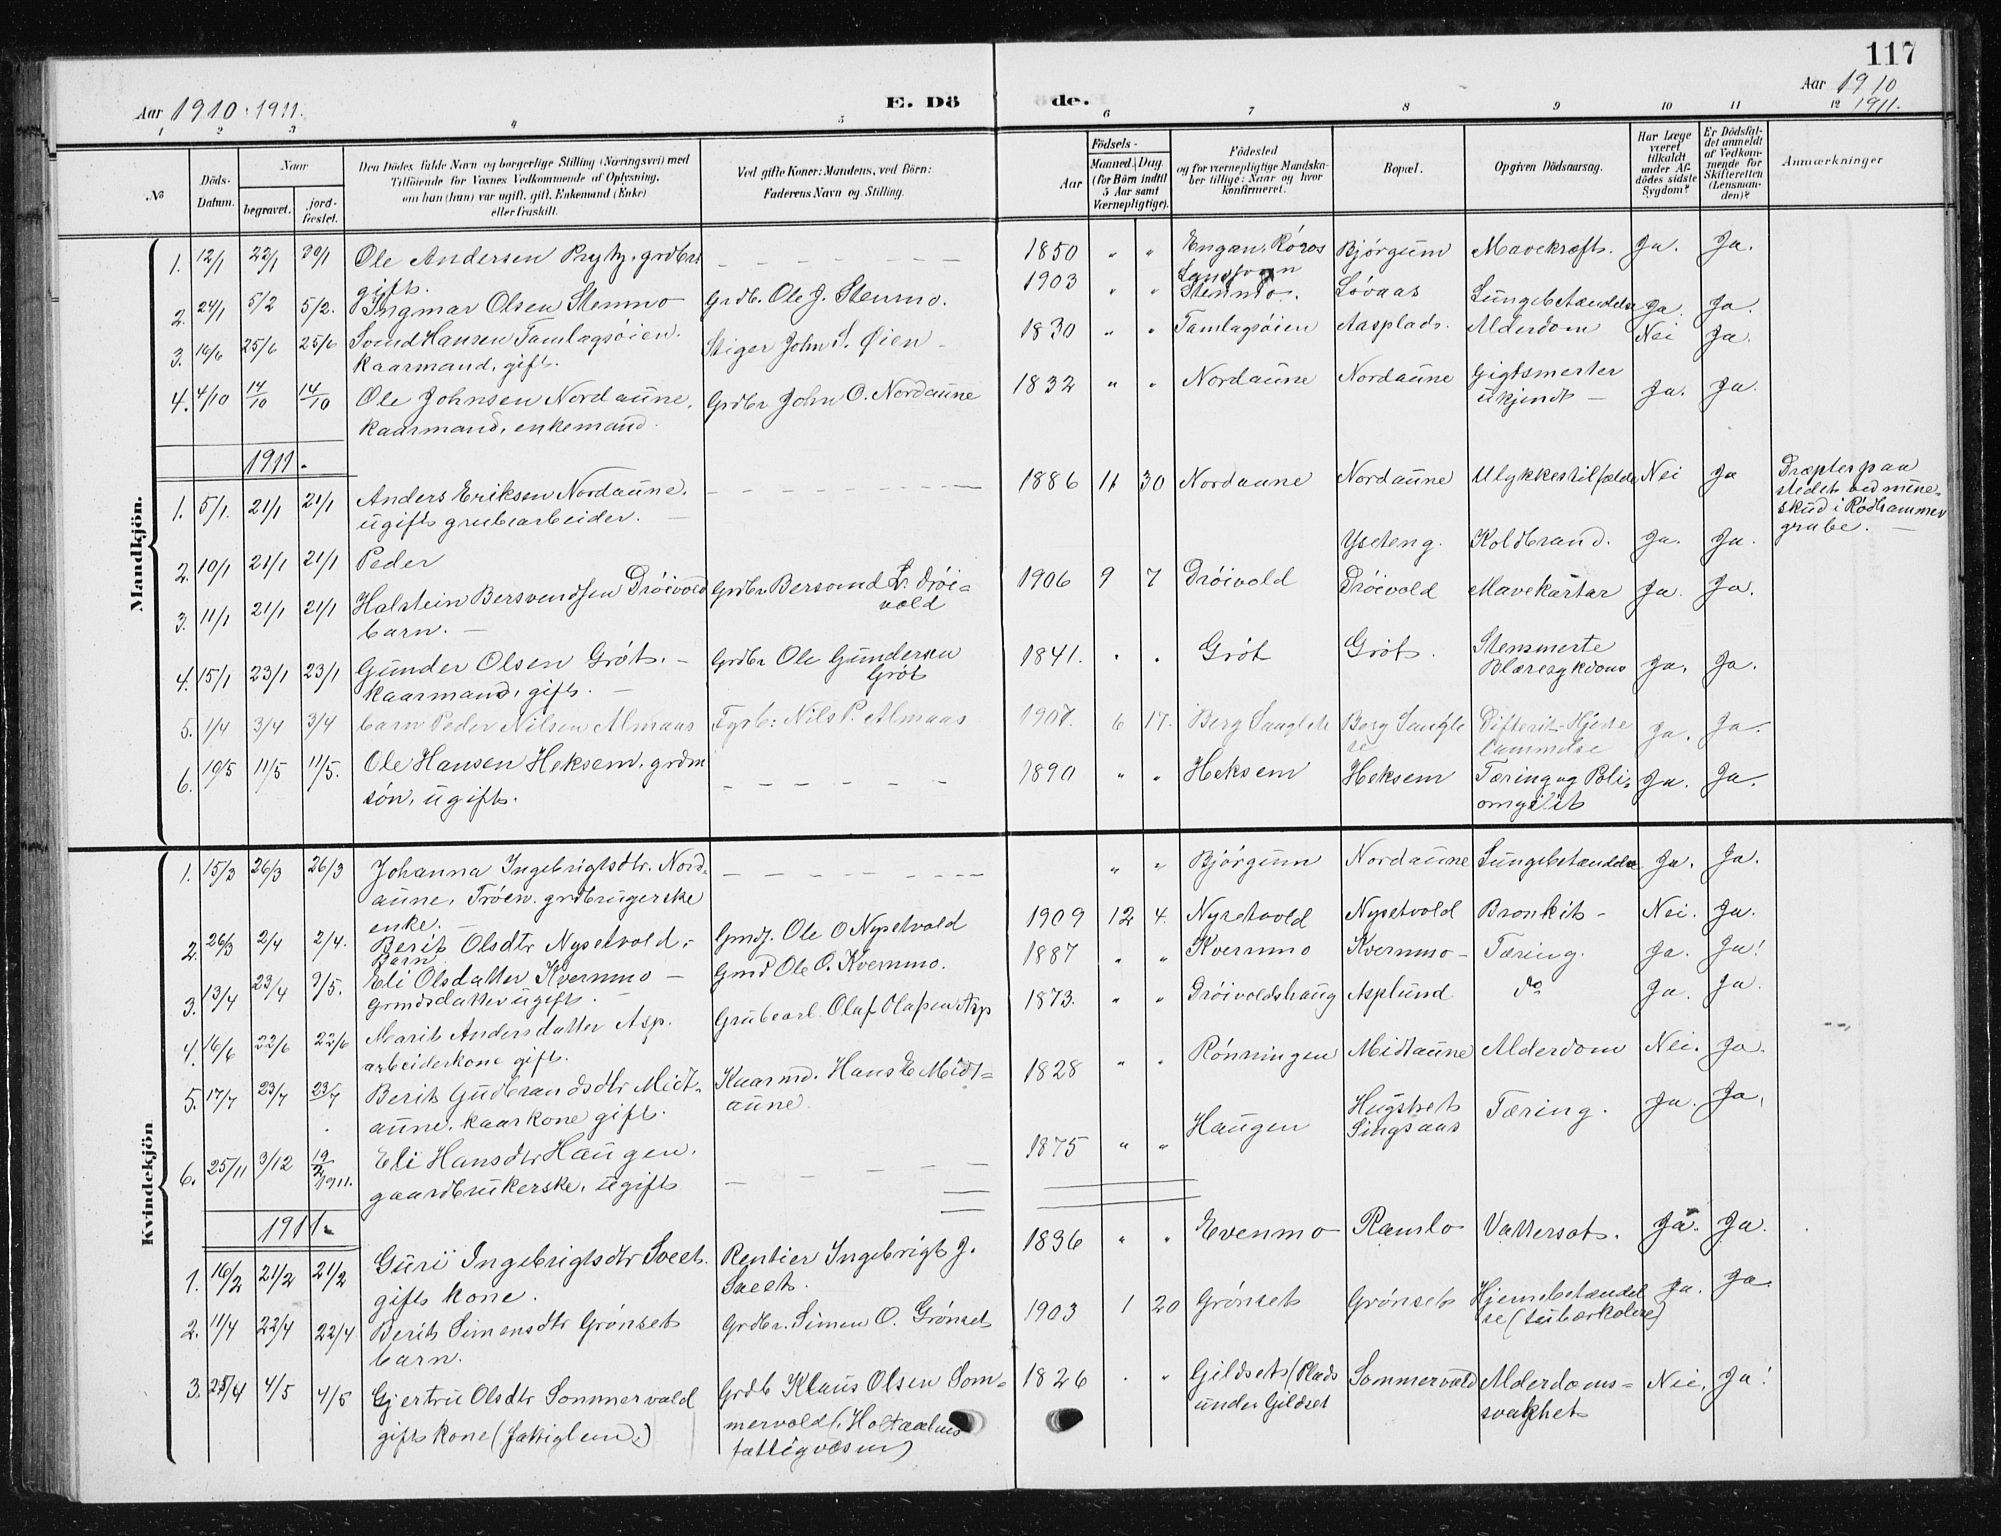 117
Aar 1910. 1911.
E. Dö
de.
Aar 1910
1911.
1 2 3 4 5 6 7 8 9 10 11 12
No
Döds-
Datum.
Naar
begravet.
jord-
fæstet.
Den Dödes fulde Navn og borgerlige Stilling (Næringsvei) med
Tilföiende for Voxnes Vedkommende af Oplysning,
om han (hun) var ugift, gift, Enkemand (Enke)
eller fraskilt.
Ved gifte Koner: Mandens, ved Börn:
Faderens Navn og Stilling.
Födsels-
Aar
Maaned. Dag.
(for Börn indtil
5 Aar samt
Værnepligtige).
Födested
og for værnepligtige Mandska-
ber tillige: Naar og hvor
konfirmeret.
Bopæl.
Opgiven Dödsaarsag.
Har Læge
været
tilkaldt
under Af-
dödes sidste
Sygdom?
Er Dödsfal-
det anmeldt
af Vedkom-
mende for
Skifteretten
(Lensman-
den)?
Anmærkninger
Mandkjön.
1. 12/1 22/1 30/1 Ole Andersen Prytz, grdbr. 1850 " " Engan, Röros Bjórgum Mavekræft. Ja. Ja.
gift.
2. 24/1 5/2 5/2. Ingmar Olsen Stenmo Grdb. Ole J. Stenmo. 1903 " " Stenmo. Lóvaas Lungebetændelse Ja. Ja.
3. 16/6 25/6 25/6 Svend Hansen Tamlagsóien. Stiger John S. Øien 1830 " " Tamlagsóien Aasplads. Alderdom Nei Ja.
kaarmand, gift.
4. 4/10 14/10 14/10 Ole Johnsen Nordaune, Grdbr John O. Nordaune 1832 " " Nordaune Nordaune Gigtsmerter Ja. Ja.
kaarmand, enkemand. ukjendt
1911.
1. 5/1. 21/1 21/1 Anders Eriksen Nordaune. 1886 11 30 Nordaune Nordaune Ulykkestilfælde Nei Ja Dræptes paa
ugift grubearbeider. stedet ved mine-
skud i Ródhammer
grube.
2. 10/1 21/1 21/1 Peder Yseteng. Koldbrand. Ja. Ja.
3. 11/1 21/1 21/1 Halstein Bersvendsen Dróivold Grdbr. Bersvend L. Drói- 1906 9 7 Dróivold Dróivold Mavekatar Ja. Ja.
barn. vold
4. 15/1 23/1 23/1 Gunder Olsen Grót. Grdbr Ole Gundersen 1841. " " Grót Gróts. Stensmerte Ja. Ja.
kaarmand, gift. Grót Blæresygdom
5. 1/4 3/4 3/4 barn Peder Nilsen Almaas Nils P. Almaas 1907. 6 17. Berg Difterit-Hjerte Ja. Ja.
lammelse
6. 10/5 11/5 11/5. Ole Hansen Heksem, grdm 1890 " " Heksem Heksem Tæring og Ja. Ja.
són, ugift.
Kvindekjön
1. 15/3 26/3 26/3 Johanna Ingebrigtsdtr. Nord- " " Bjórgum Nordaune Lungebetændelse Ja. Ja.
aune, Tróen. grdbrugerske
enke.
2. 26/3 2/4 2/4. Berit Olsdtr Nysetvold. Gmdj. Ole O Nysetvold 1909 12 4. Nysetvold Nysetvold Bronkit Nei. Ja.
Barn.
3. 13/4 23/4 3/5. Eli Olsdatter Kvernmo Gmd Ole O. Kvernmo. 1887 " " Kvernmo Kvernmo Tæring. Ja. Ja!
grmdsdatter ugift.
4. 16/6 22/6 22/6 Marit Andersdatter Asp. Grubearb. Olaf Olafsen Asp 1873. " " Dróivoldshaug Asplund do Ja. Ja.
arbeiderkone gift.
5. 17/7 23/7 23/7 Berit Gudbrandsdtr Midt- Kaarmd. Hans E Midt= 1828 " " Rónningen Midtaune Alderdom Nei. Ja.
aune, kaarkone gift. aune.
6. 25/11 3/12 19/2 1911. Eli Hansdtr Haugen, 1875 " " Haugen Singsaas Tæring. Ja. Ja.
gaardbrukerske, ugift
1911.
1. 16/2 21/2 21/2 Guri Ingebrigtsdtr Sveet. Rentier Ingebrigt J. 1836 " " Evenmo Ramlo Vattersot. Ja. Ja.
gift kone. Sveet.
2. 11/4 22/4 22/4 Berit Simensdtr Grónset Grdbr. Simen O. Grónset 1903 1 20 Grónset Grónset Hjernebetændel Ja. Ja.
barn. se (tuberkolere)
3. 25/4 4/5 4/5 Gjertru Olsdtr Sommervold Grdb Klaus Olsen Som- 1826 " " Gildset (Plads Sommervold Alderdoms= Nei. Ja!
gift kone (fattiglem.) mervold (Holtaalens under Gildset svakhet
fattigvæsen)